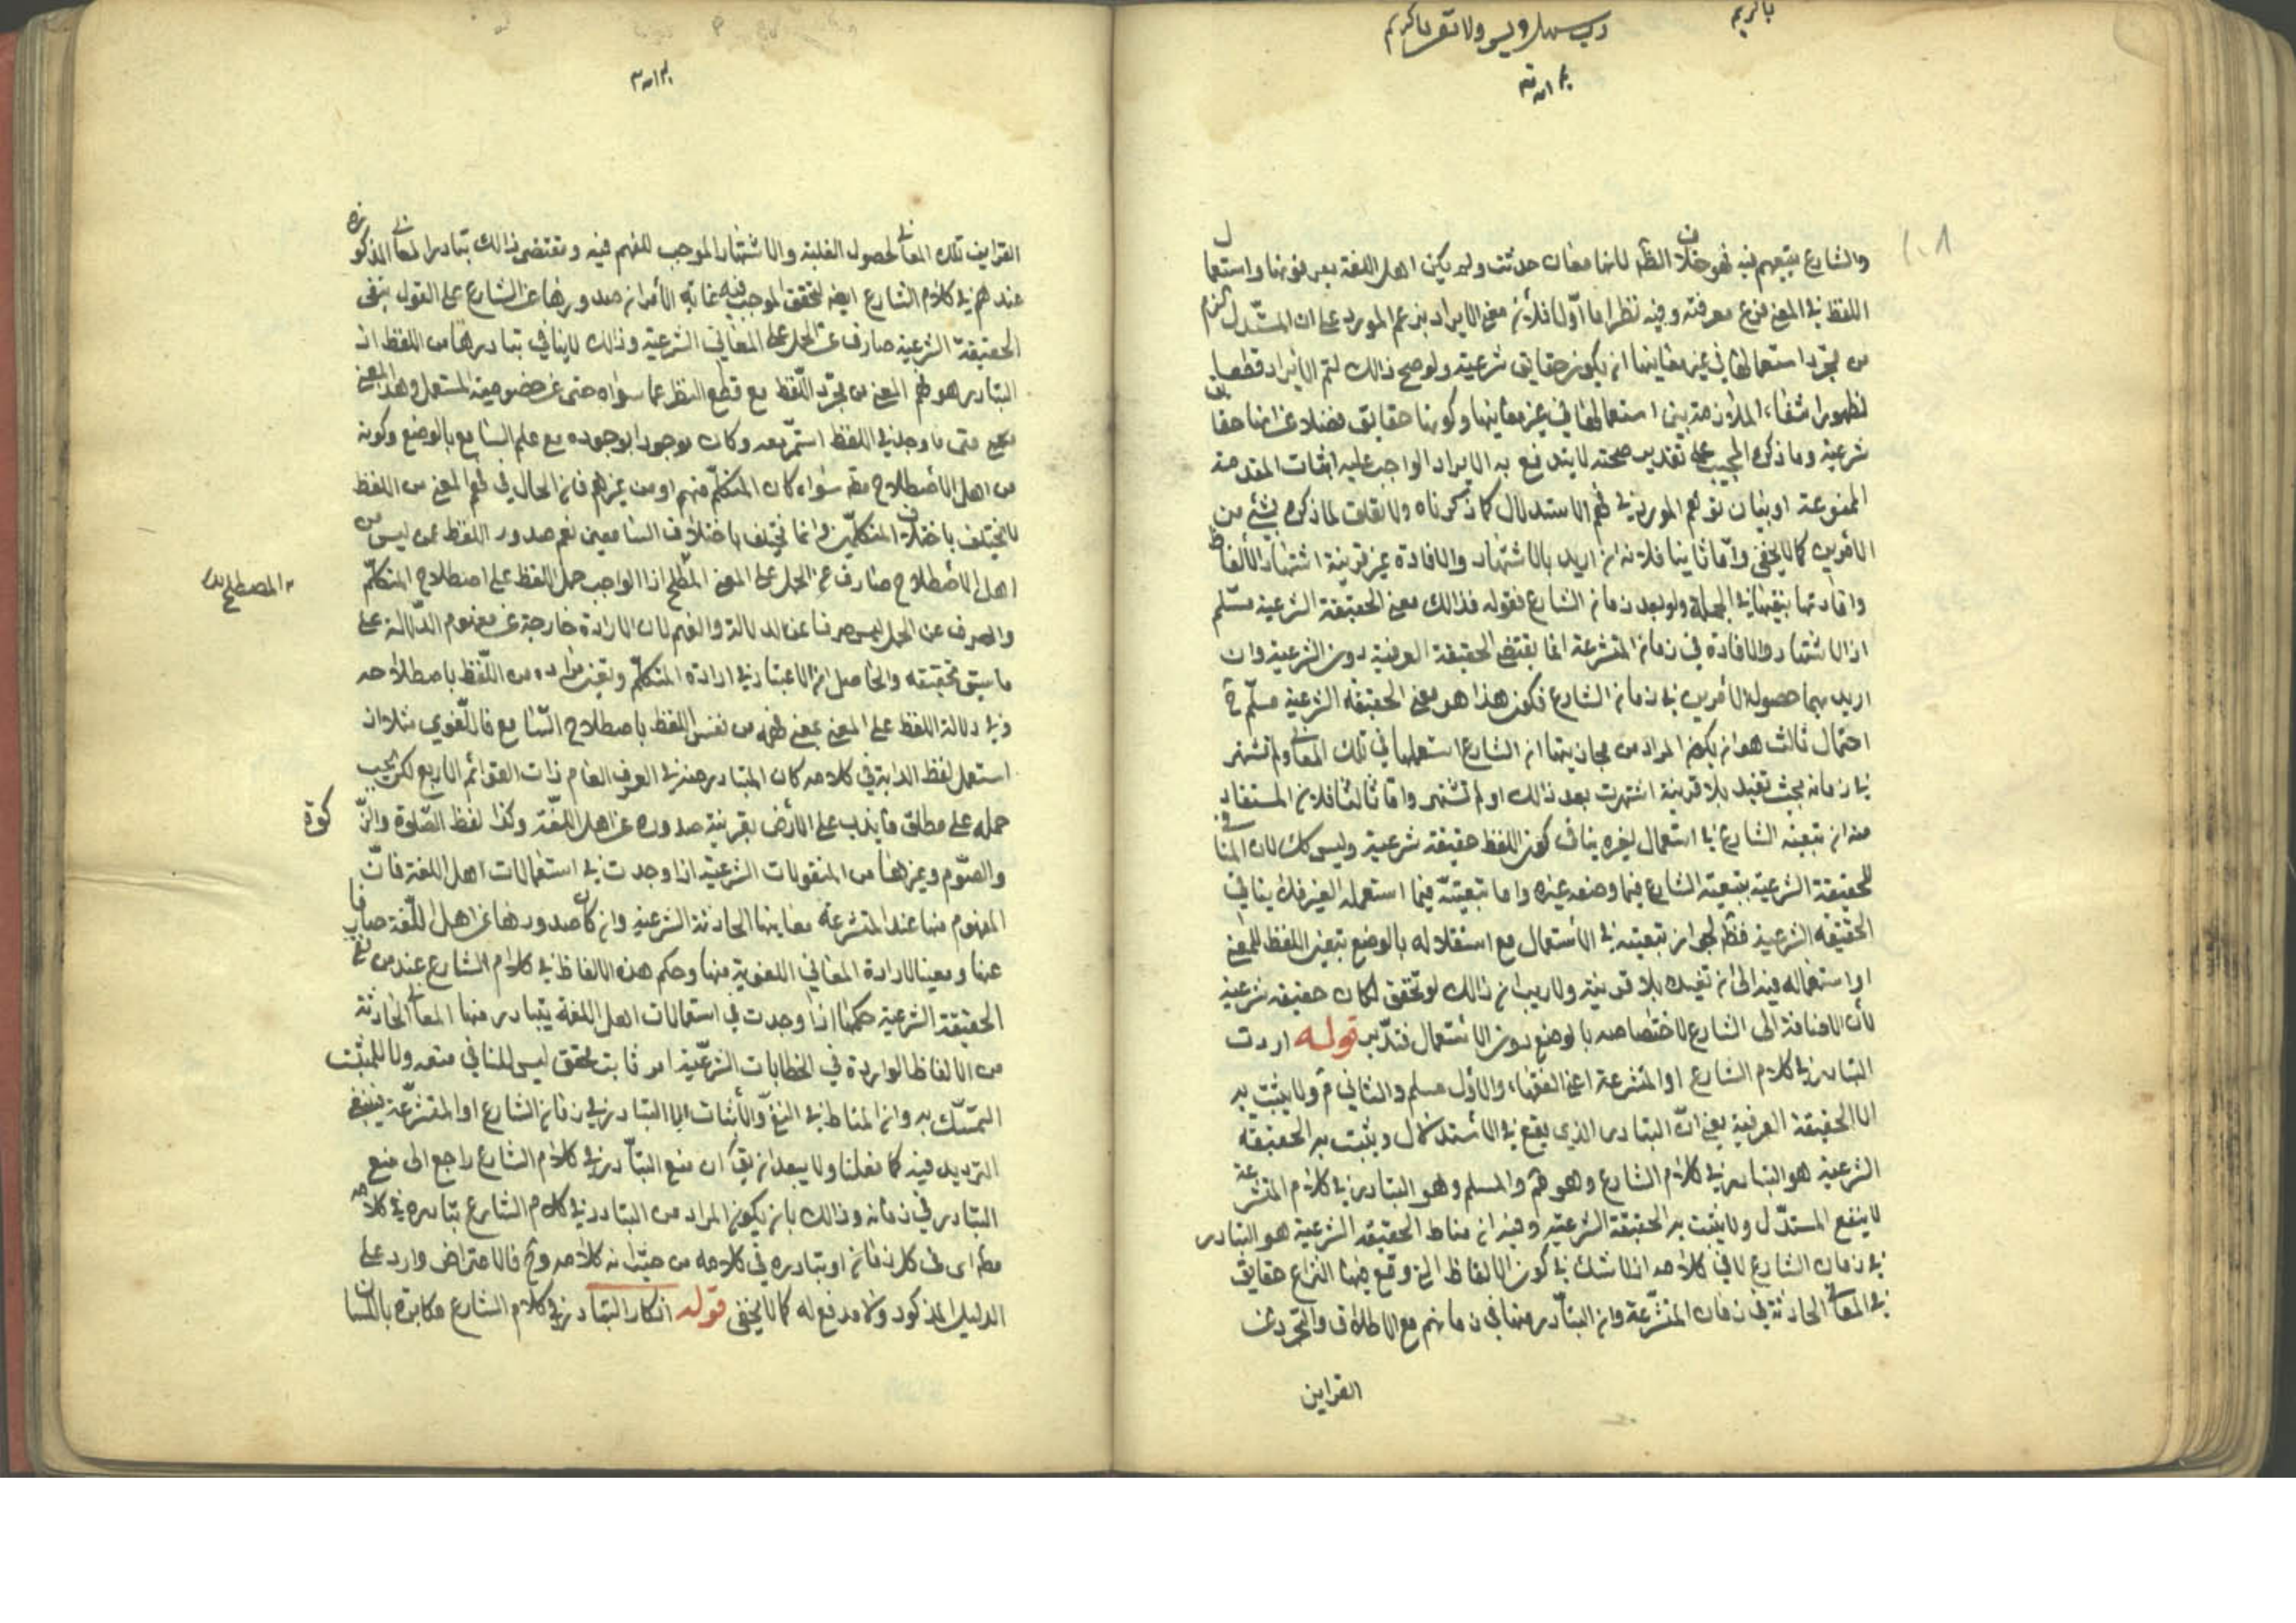 والشارع يتبعهم فيه فهو خلاف الظ لانها معان حدثت ولم يكن اهل اللغة يعرفونها واستعمال
اللفظ في المعنى فرع معرفته وفيه نظر اما أولا فلأن مبنى الايراد بزعم المورد على ان المستدل الزم
من مجرد استعمالها في غير معاينها ان يكون حقايق شرعية ولو صح ذالك لتم الأيراد قطعا
لظهور انتفاء الملازمة بين استعمالها في غير معاينها وكونها حقايق فضلا عن انها حقايق
شرعية وما ذكره المجيب على تقدير صحته لا يندفع به الايراد الواجب عليه اثبات المقدمة
الممنوعة او بيان توهم المورد في فهم الاستدلال كما ذكرناه ولا تعلق لما ذكره بشئ من
الأمرين كما لا يخفى وأما ثانيا فلانه ان اريد بالاشتهار والافادة بغير قرينة اشتهار الألفاظ
وافادتها بنفسها في الجملة ولو بعد زمان الشارع فقوله فذالك معنى الحقيقة الشرعية مسلم
اذ الاشتهار والافادة في زمان المتشرعة انما يقتضي الحقيقة العرفية دون الشرعية وان
اريد بهما حصول الأمرين في زمان الشارع فكون هذا هو معنى الحقيقة الشرعية مسلم
احتمال ثالث هو ان يكون المراد من مجازيتها ان الشارع استعملها في تلك المعاني ولم تشتهر
في زمانه بحيث تفيد بلا قرينة اشتهرت بعد ذالك او لم تشتهر واما ثالثا فلان المستفاد
منه ان تبعية الشارع في استعمال لغيره ينافي كون اللفظ حقيقة شرعية وليس كك لان المنافي
للحقيقة الشرعية تبعية الشارع فيما وضعه غيره واما تبعيته فيما استعمله الغير فلا ينافي
الحقيقة الشرعية قط لجواز تبعيته في الأستعمال مع استقلاله بالوضع بتعين اللفظ للمعنى
او استعماله فيه الى ان تفيده بلا قرينة ولا ريب ان ذالك لو تحقق لكان حقيقة شرعية
لأن الاضافة الى الشارع لاختصاصه بالوضع دون الاستعمال فتدبر قوله اردت
التبادر في كلام الشارع او المتشرعة اعني الفقهاء والاول مسلم والثاني م ولا يثبت به
الا الحقيقة العرفية يعني ان التبادر الذي يقع في الأستدلال ويثبت به الحقيقة
الشرعية هو التبادر في كلام الشارع وهو م والمسلم وهو التبادر في كلام المتشرعة
لا ينفع المستدل ولا يثبت به الحقيقة الشرعية وفيه ان مناط الحقيقة الشرعية هو التبادر
في زمان الشارع لا في كلامه اذ لا شك في كون الالفاظ التي وقع فيها النزاع حقايق
في المعاني الحادثة في زمان المتشرعة وان التبادر منها في زمانهم مع الاطلاق والتجرد عن
القراين
القراين تلك المعاني لحصول الغلبة والاشتهار الموجب للفهم فيه ومقتضى ذالك تبادر المعاني المذكوره
عندهم في كلام الشارع ايضا لتحقق الموجب فيه غاية الأمر ان صدورها عن الشارع على القول بنفي
الحقيقة الشرعية صارف عن الحمل على المعاني الشرعية وذالك لا ينافي تبادرها من اللفظ اذ
التبادر هو فهم المعنى من مجرد اللفظ مع قطع النظر عما سواه حتى عن خصوصية المستعمل وهذا المعنى
متى ما وجد في اللفظ استمر معه وكان موجودا بوجوده مع علم السامع بالوضع وكونه
من اهل الأصطلاح مط سواء كان المتكلم منهم او من غيرهم فان الحال في فهم المعنى من اللفظ
لا يختلف باختلاف المتكلمين وانما تختلف باختلاف السامعين نعم صدور اللفظ عمن ليس من
اهل الأصطلاح صارف عن الحمل على المعنى المصطلح اذ الواجب حمل اللفظ على اصطلاح المتكلم
والصرف عن الحمل ليس صرفا عن الدلالة والفهم لان الارادة خارجة عن مفهوم الدلالة على
ما سبق تحقيقه والحاصل ان الاعتبار في ارادة المتكلم وتعين مراده من اللفظ باصطلاحه
وفي دلالة اللفظ على المعنى بمعنى فهمه من نفس اللفظ باصطلاح السامع فاللغوي مثلا اذ
استعمل لفظ الدابة في كلامه كان المتبادر منه في العرف العام ذات القوائم الاربع لكن يجب
حمله على مطلق ما يدب على الأرض بقرينة صدوره عن اهل اللغة وكذا لفظ الصلوة والزكوة
والصوم وغيرها من المنقولات الشرعية اذا وجدت في استعمالات اهل اللغة فان
المفهوم منها عند المتشرعة معاينها الحادثة الشرعية وان كان صدورها عن اهل اللغة صارفا
عنها ومعينا لارادة المعاني اللغوية منها وحكم هذه الالفاظ في كلام الشارع عند من نفى
الحقيقة الشرعية حكمها اذا وجدت في استعمالات اهل اللغة يتبادر منها المعاني الحادثة
من الالفاظ الواردة في الخطابات الشرعية امر ثابت محقق ليس للنافي منعه ولا للمثبت
التمسك به وان المناط في النفي والأثبات انما التبادر في زمان الشارع او المتشرعة ينبغي
الترديد فيه كما فعلنا ولا يبعد ان يقال ان منع التبادر في كلام الشارع راجع الى منع
التبادر في زمانه وذالك بان يكون المراد من التبادر في كلام الشارع تبادره في كلامه
مط اي في كل زمان او تبادره في كلامه من حيث انه كلامه وح فالاعتراض وارد على
الدليل المذكور ولا مدفع له كما لا يخفى قوله انكار التبادر في كلام الشارع مكابرة باللسان